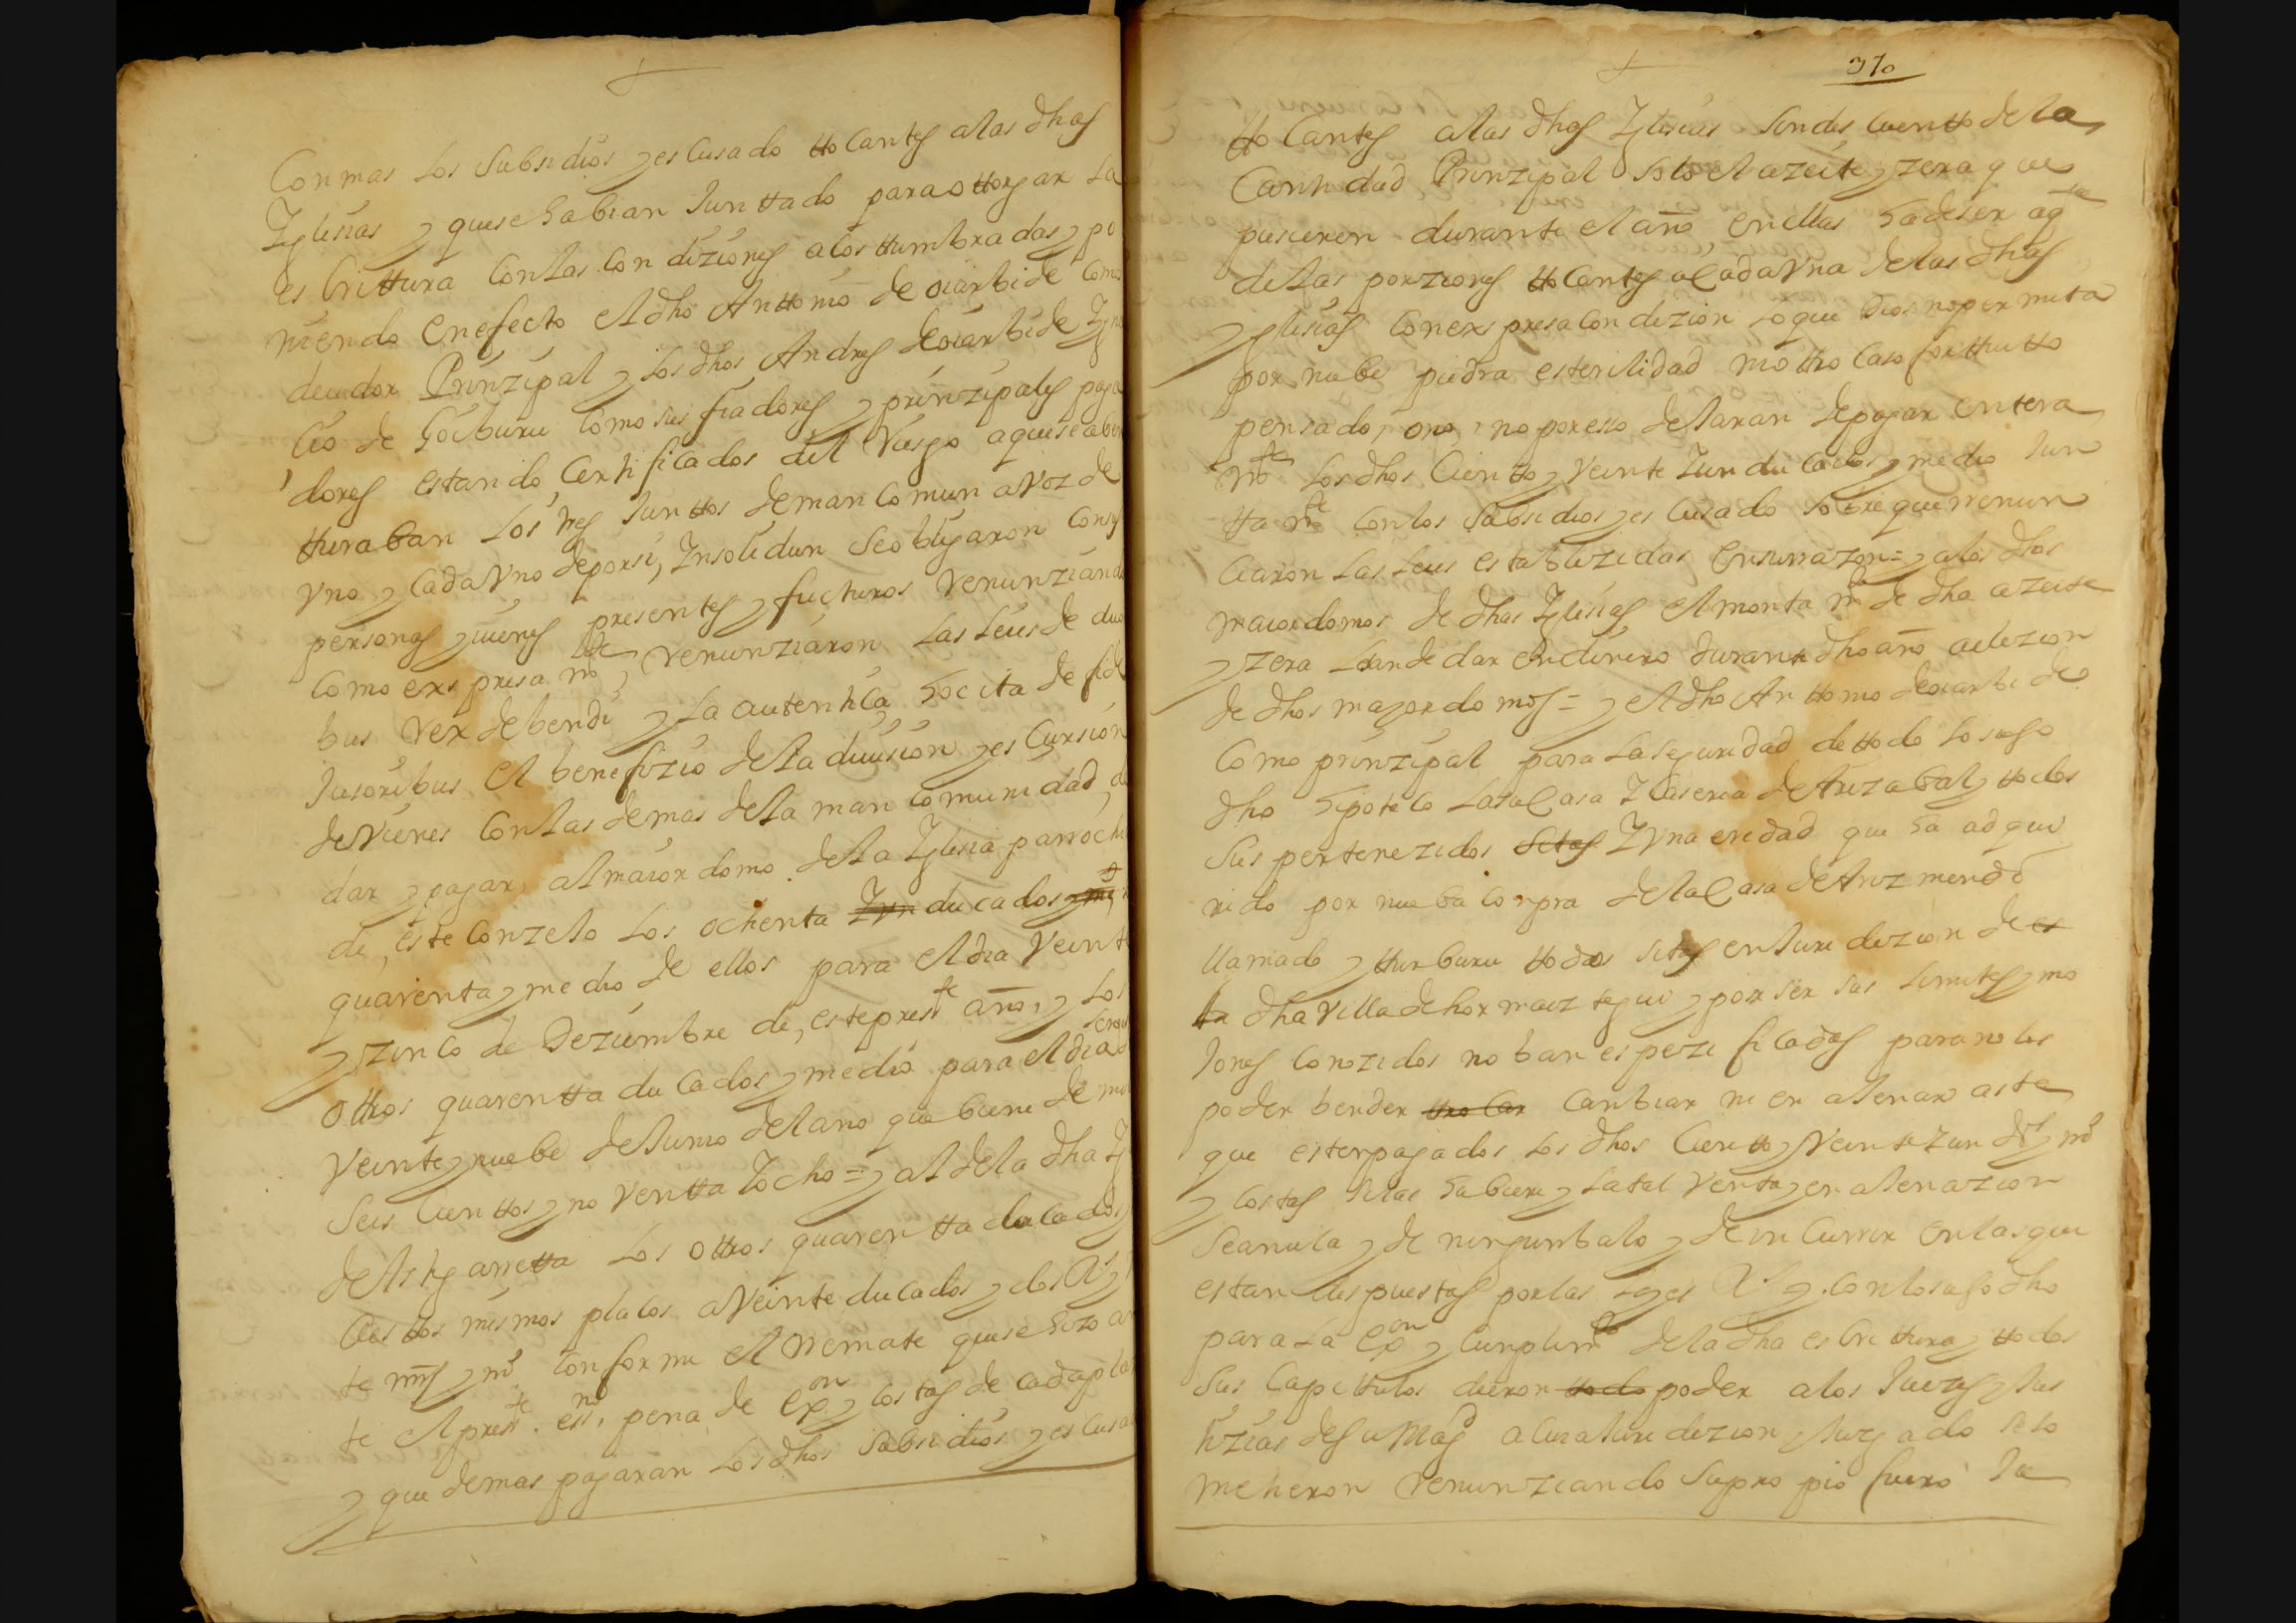 Con mas los subsidios y escusado ttocantes a las dhas
Yglesias y que se habian Junttado para ottorgar la
escrittura con las condiziones acosttumbradas y po
niendo en efecto el dho Anttonio de oiarbide como
deudor Prinzipal y los dhos Andres de oiarbide Ygna
cio de Goiburu como sus fiadores y prinzipales paga
dores estando certificados del riesgo a que se aben
thuraban los tres Junttos de mancomun a voz de
vno y cada vno de por si, Ynsolidun se obligaron con sus
personas y vienes presentes y fucturos renunziando
como exspresamte renunziaron las leies de duo
bus rex debendi y la autentica hocita de fide
Jusoribus el benefizio de la diuision y escursion
de vienes con las demas de la mancomunidad, de
dar y pagar al maiordomo de la Yglesia parrochi
de, este conzelo los ochenta Yvn ducados y mº
quarenta y medio de ellos para el dia veinte
y zinco de Deziembre de, este preste año, y los
ottros quarentta ducados y medio para el dia de
veinte y nuebe de Junio del ano que biene de mil
seis cienttos y noventta Yocho = y al de la dha Yg
de Astigarretta los ottros quarentta ducados
a los mismos plazos a veinte ducados y dos Rs y
te mrs y mº conforme el rremate que se hizo an
te el preste essno pena de exon y costas de cada plazo
y que demas pagaran los dhos subsidios y escusado
370
ttocantes a las dhas Yglesias sin descuentto de la
cantidad Prinzipal solo el azeite y zera que
pusieren durante el año en ellas ha de ser aqte
de las porziones ttocantes a cada vna de las dhas
yglesias con exspresa condizion lo que Dios no permita
por nube piedra esterilidad ni ottro caso forthuitto
pensado, o no, no por esso dexaran de pagar entera
mte los dhos cientto y veinte Yun ducados y medio Jun
ttamte con los subsidios y escusado sobre que renun
ciaron las leies establezidas en su rrazon = y a los dhos
maiordomos de dhas Yglesias el montamto de dha azeite
y zera han de dar en dinero durante dho año a elezion
de dhos mayordomos = y el dho Anttonio de oiarbide
como prinzipal para la seguridad de ttodo lo suso
dho hipoteco la tal Casa Y Caseria de Arizabal y ttodos
sus pertenezidos sitas Yvna eredad que ha adqui
rido por nueba conpra de la Casa de Arozmendi
llamado ytturburu ttodos sitos en Jurisdizion de es
ta dha villa de hormaiztegui y por ser sus limites y mo
Jones conozidos no ban espezificadas para no los
poder bender trocar canbiar ni en alenar asta
que esten pagados los dhos cientto y veinte Yun ds y mº
y costas si las hubiere y la tal venta y en alenazion
sea nula y de ningun balo y de incurrir en las que
estan dispuestas por las leyes Rs y con lo susodho
para la exon y cunplimto de la dha escrittura y ttodos
sus capittulos dieron ttodo poder a los Juezes y Jus
tizias de su Magd a cuia Jurisdizion y Juzgado se so
metieron renunziando su propio fuero Ju